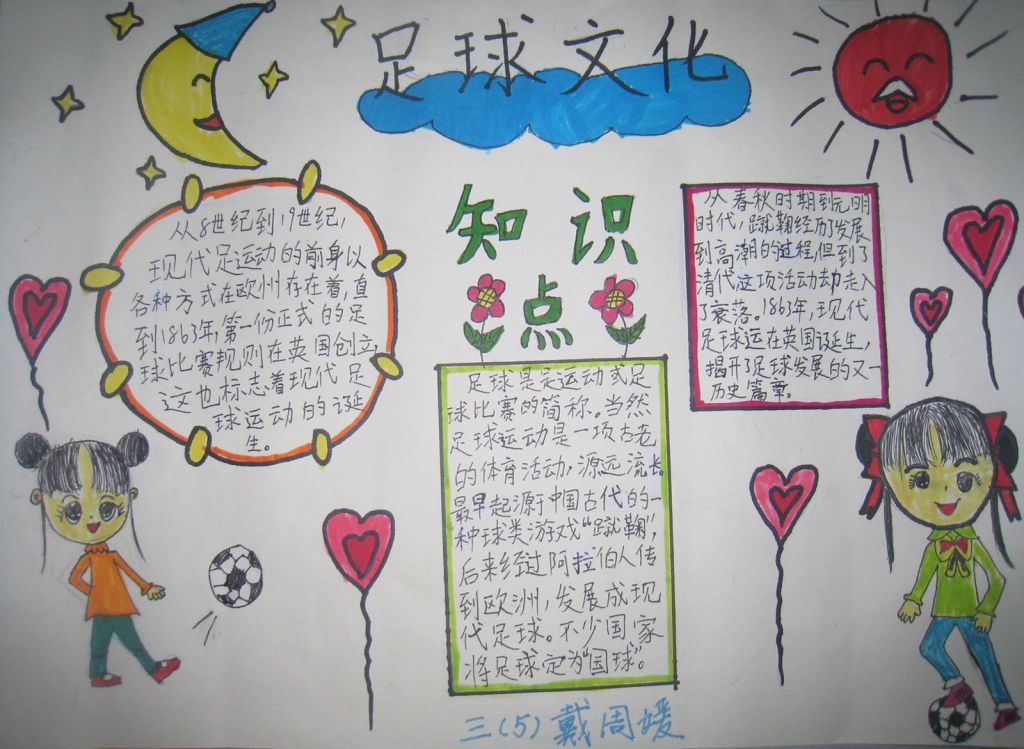 足球文化
知识
点
从8世纪到19世纪,
现代足运动的前身以
各种方式在欧州存在着,直
到1863年,第一份正式的足
球比赛规则在英国创立,
这也标志着现代足
球运动的诞
生。
足球是足运动或足
球比赛的简称。当然
足球运动是一项古老
的体育活动,源远流长。
最早起源于中国古代的一
种球类游戏“蹴鞠”,
后来经过阿拉伯人传
到欧洲,发展成现
代足球。不少国家
将足球定为“国球”。
从春秋时期到元明
时代,蹴鞠经历发展
到高潮的过程,但到了
清代这项活动走入
了衰落。1863年,现代
足球运在英国诞生,
揭开了足球发展的又一
历史篇章。
三(5)戴周媛